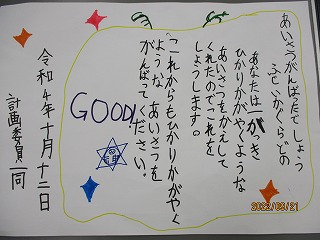 あいさつがんばったでしょう
どの
あなたは一がっき
ひかりかがやくような
あいさつをかえして
くれたのでこれを
しょうします。
これからもひかりかがやく
ような あいさつを
がんばってください。
GOOD!
令和4年十月十二日
計画委員一同
2022/09/21